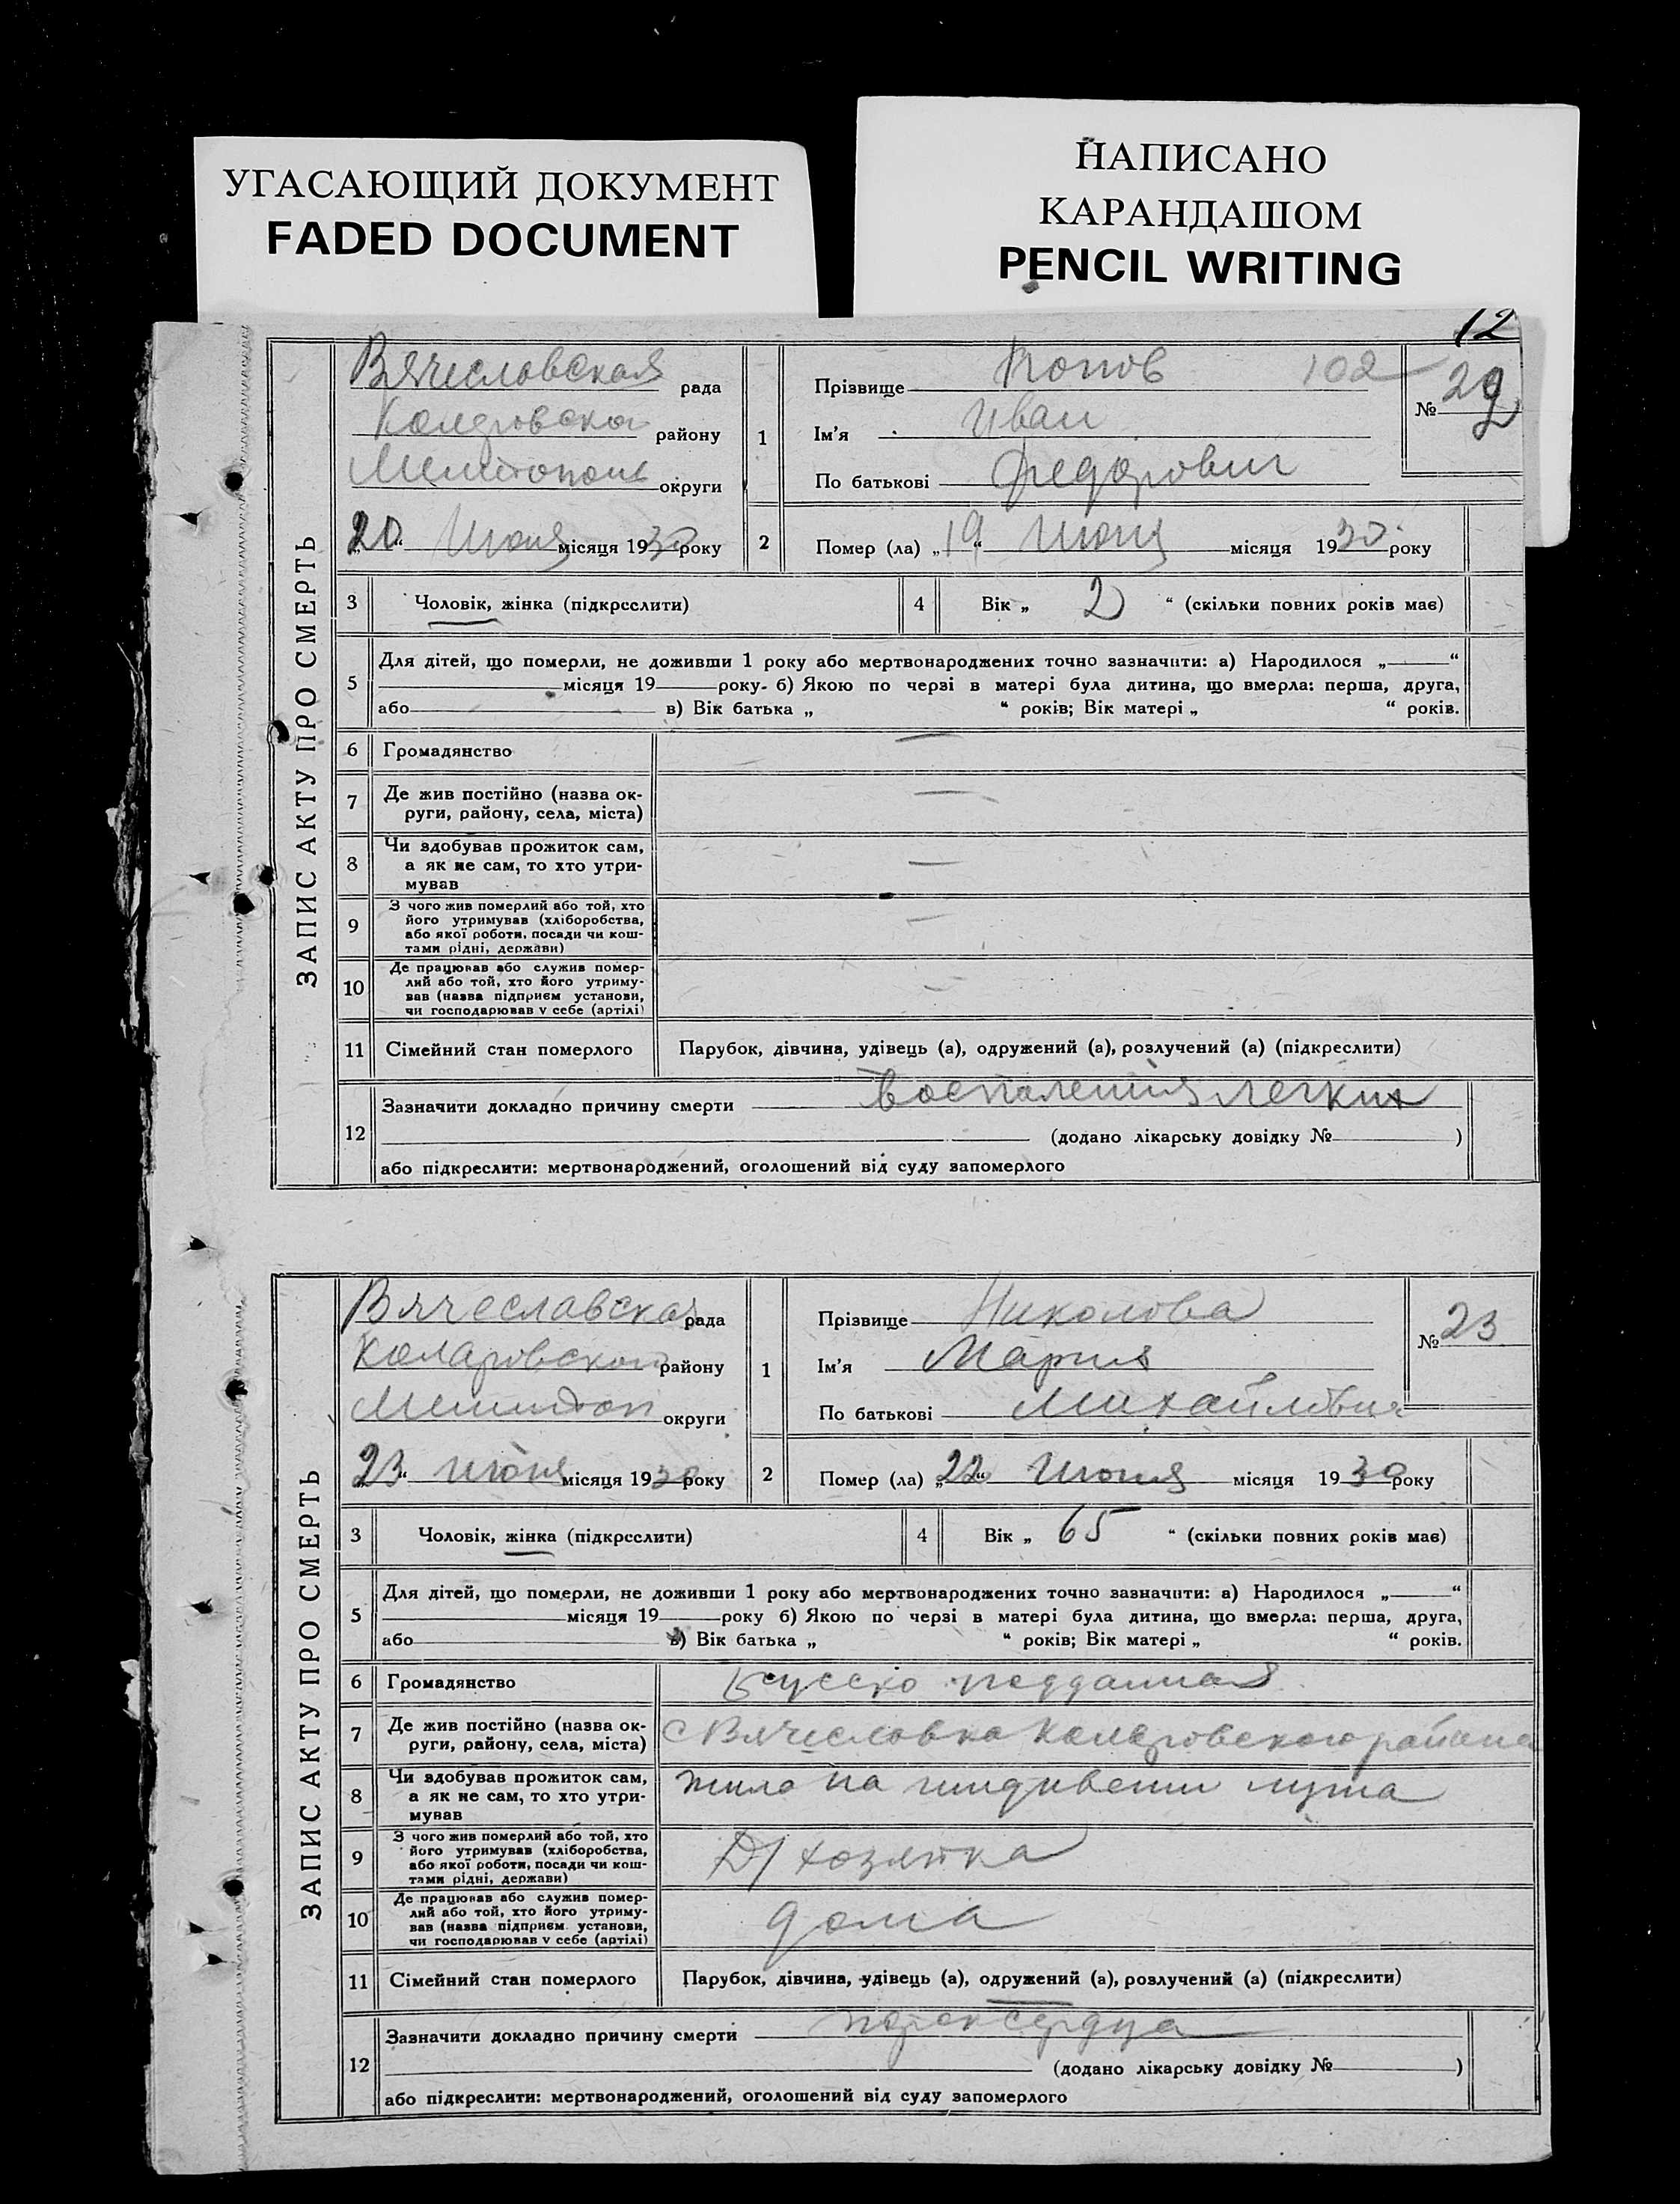 УГАСАЮЩИЙ ДОКУМЕНТ
FADED DOCUMENT
НАПИСАНО
КАРАНДАШОМ
PENCIL WRITING
12
ЗАПИС АКТУ ПРО СМЕРТЬ
Вячесловская рада
района району
Мелитополь округи
„20“ Июня місяця 1930 року
1
Прізвище Попов 102
Ім'я Иван
По батькові Федорович
№ 22
2 Помер (ла) „19“ Июня місяця 1930 року
3 Чоловік, жінка (підкреслити)
4 Вік „ 2 “ (скільки повних років має)
5 Для дітей, що померли, не доживши 1 року або мертвонароджених точно зазначити: а) Народилося „ “
місяця 19 року. б) Якою по черзі в матері була дитина, що вмерла: перша, друга,
або в) Вік батька „ “ років; Вік матері „ “ років.
6 Громадянство —
7 Де жив постійно (назва ок-
руги, району, села, міста) —
8 Чи здобував прожиток сам,
а як не сам, то хто утри-
мував —
9 З чого жив померлий або той, хто
його утримував (хліборобства,
або якої роботи, посади чи кош-
тами рідні, держави) —
10 Де працював або служив помер-
лий або той, хто його утриму-
вав (назва підприєм установи,
чи господарював у себе (артілі) —
11 Сімейний стан померлого Парубок, дівчина, удівець (а), одружений (а), розлучений (а) (підкреслити)
12 Зазначити докладно причину смерти воспаления легких
(додано лікарську довідку № )
або підкреслити: мертвонароджений, оголошений від суду запомерлого
ЗАПИС АКТУ ПРО СМЕРТЬ
Вячеславская рада
Коларовского району
Мелитоп округи
„23“ июня місяця 1930 року
1
Прізвище Николова
Ім'я Мария
По батькові Михайловна
№ 23
2 Помер (ла) „22“ Июня місяця 1930 року
3 Чоловік, жінка (підкреслити)
4 Вік „ 65 “ (скільки повних років має)
5 Для дітей, що померли, не доживши 1 року або мертвонароджених точно зазначити: а) Народилося „ “
місяця 19 року б) Якою по черзі в матері була дитина, що вмерла: перша, друга,
або в) Вік батька „ “ років; Вік матері „ “ років.
6 Громадянство подданная
7 Де жив постійно (назва ок-
руги, району, села, міста) с Вячеславка Коларовского района
8 Чи здобував прожиток сам,
а як не сам, то хто утри-
мував жила на иждивении мужа
9 З чого жив померлий або той, хто
його утримував (хліборобства,
або якої роботи, посади чи кош-
тами рідні, держави) Д/хозяйка
10 Де працював або служив помер-
лий або той, хто його утриму-
вав (назва підприєм. установи,
чи господарював у себе (артілі) дома
11 Сімейний стан померлого Парубок, дівчина, удівець (а), одружений (а), розлучений (а) (підкреслити)
12 Зазначити докладно причину смерти порок сердца
(додано лікарську довідку № )
або підкреслити: мертвонароджений, оголошений від суду запомерлого